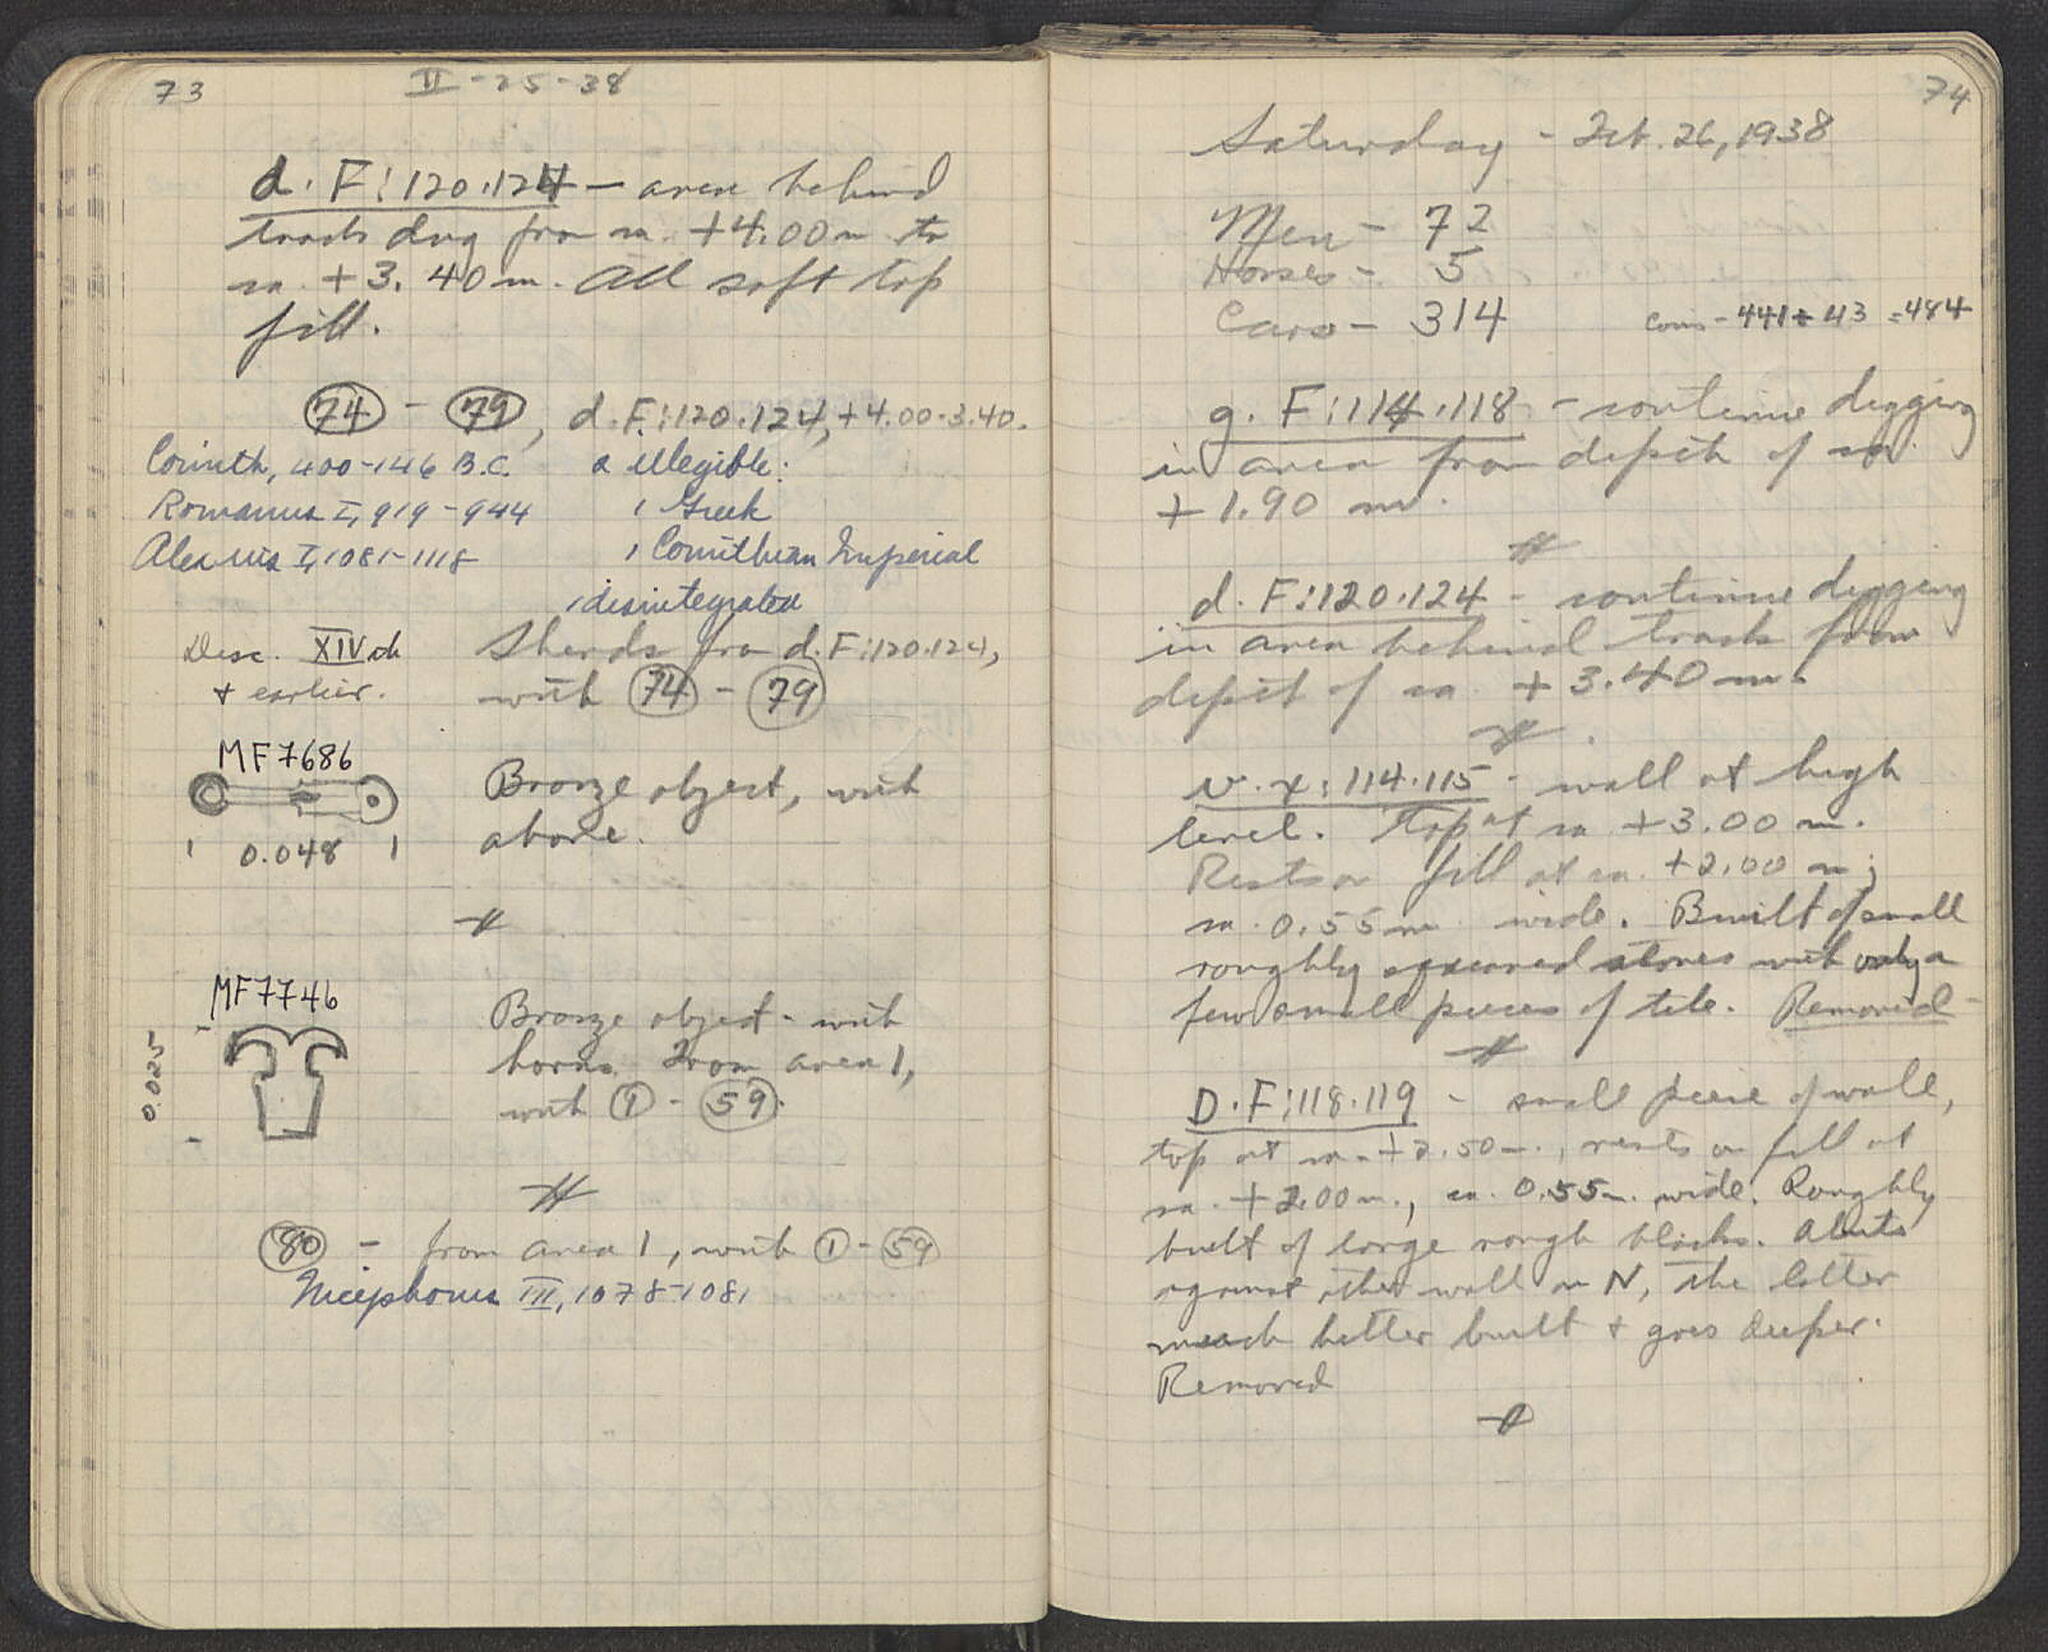 73
II - 25 - 38
d. F:120.124 — area behind
track dug from ca. +4.00m to
ca. +3.40m. All soft top
fill.
74 - 79, d. F:120.124, +4.00-3.40.
Corinth, 400-146 B.C.
Romanus I, 919-944
Alexius I, 1081-1118
illegible:
1 Greek
1 Corinthian Imperial
1 disintegrated
Disc. XIVth
+ earlier.
Sherds from d. F:120.124,
with 74 - 79
MF7686
0.048
Bronze object, with
above.
MF7746
0.025
Bronze object - with
horns. From area 1,
with 1 - 59.
80 - from area 1, with 1 - 59
Nicephorus III, 1078-1081
74
Saturday - Feb. 26, 1938
Men - 72
Horses - 5
Cars - 314
Coins - 441 + 43 = 484
g. F:114.118 - continue digging
in area from depth of ca.
+1.90 m.
d. F:120.124 - continue digging
in area behind track from
depth of ca. +3.40 m.
v. x: 114.115 - wall at high
level. Top at ca +3.00 m.
Rests on fill at ca. +2.00 m;
ca. 0.55m wide. Built of small
roughly squared stones with only a
few small pieces of tile. Removed
D. F:118.119 - small piece of wall,
top at ca. +2.50m., rests on fill at
ca. +2.00m., ca. 0.55m. wide. Roughly
built of large rough blocks. Abuts
against other wall on N, the latter
much better built + goes deeper.
Removed